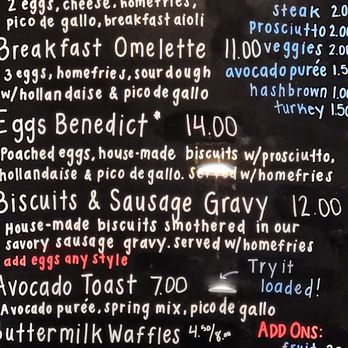 2 eggs, cheese, homefries,
pico de gallo, breakfast aioli
Breakfast Omelette 11.00
3 eggs, homefries, sourdough
w/hollandaise & pico de gallo
Eggs Benedict* 14.00
Poached eggs, house-made biscuits w/prosciutto,
hollandaise & pico de gallo. Served w/homefries
Biscuits & Sausage Gravy 12.00
House-made biscuits smothered in our
savory sausage gravy. served w/homefries
add eggs any style
Avocado Toast 7.00
Avocado purée, spring mix, pico de gallo
Try it
loaded!
Buttermilk Waffles 4.50/8.00
steak 2.0
prosciutto 2.00
veggies 2.00
avocado purée 1.5
hashbrown 1.00
turkey 1.50
ADD ONS:
fruit